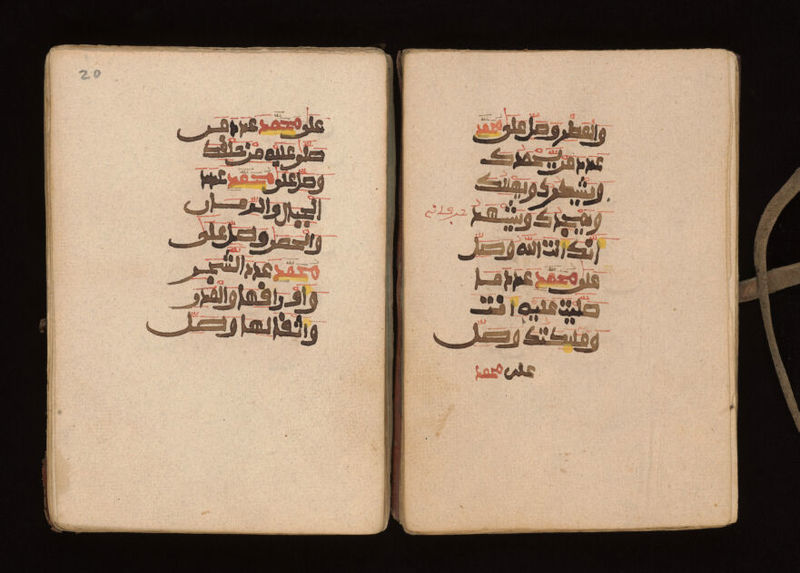 والقطر وصل على محمد
عدد من يحمدك
ويشكرك ويهللك
ويمجدك ويشهد
انك انت الله وصل
على محمد عدد ما
صليت عليه انت
وملئكتك وصل
على محمد
20
على محمد عدد من
صلى عليه من خلقك
وصل على محمد عدد
الجبال والرمال
والحصى وصل على
محمد عدد الشجر
واوراقها والمدر
واثقالها وصل